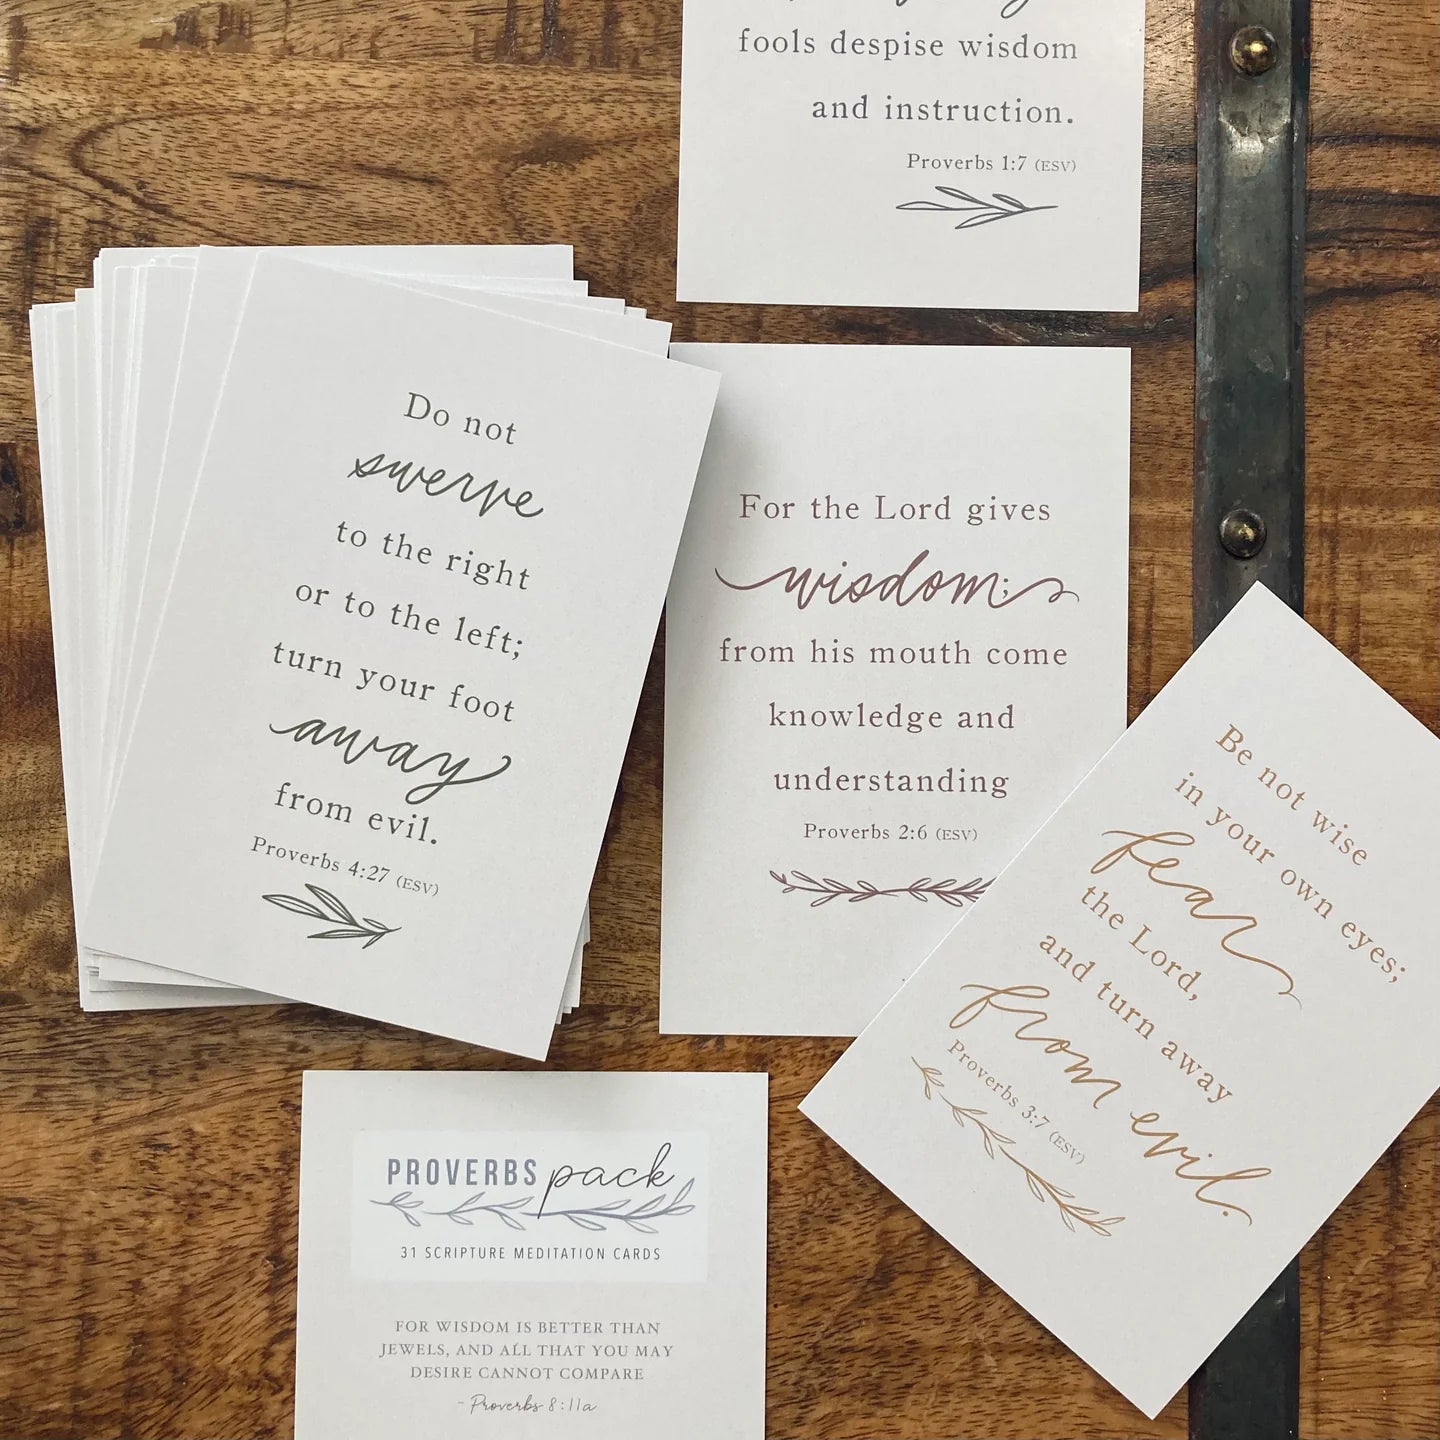 fools despise wisdom
and instruction.
Proverbs 1:7 (ESV)
Do not
swerve
to the right
or to the left;
turn your foot
away
from evil.
Proverbs 4:27 (ESV)
For the Lord gives
wisdom;
from his mouth come
knowledge and
understanding
Proverbs 2:6 (ESV)
Be not wise
in your own eyes;
fear
the Lord,
and turn away
from evil.
Proverbs 3:7 (ESV)
PROVERBS pack
31 SCRIPTURE MEDITATION CARDS
FOR WISDOM IS BETTER THAN
JEWELS, AND ALL THAT YOU MAY
DESIRE CANNOT COMPARE
- Proverbs 8:11a